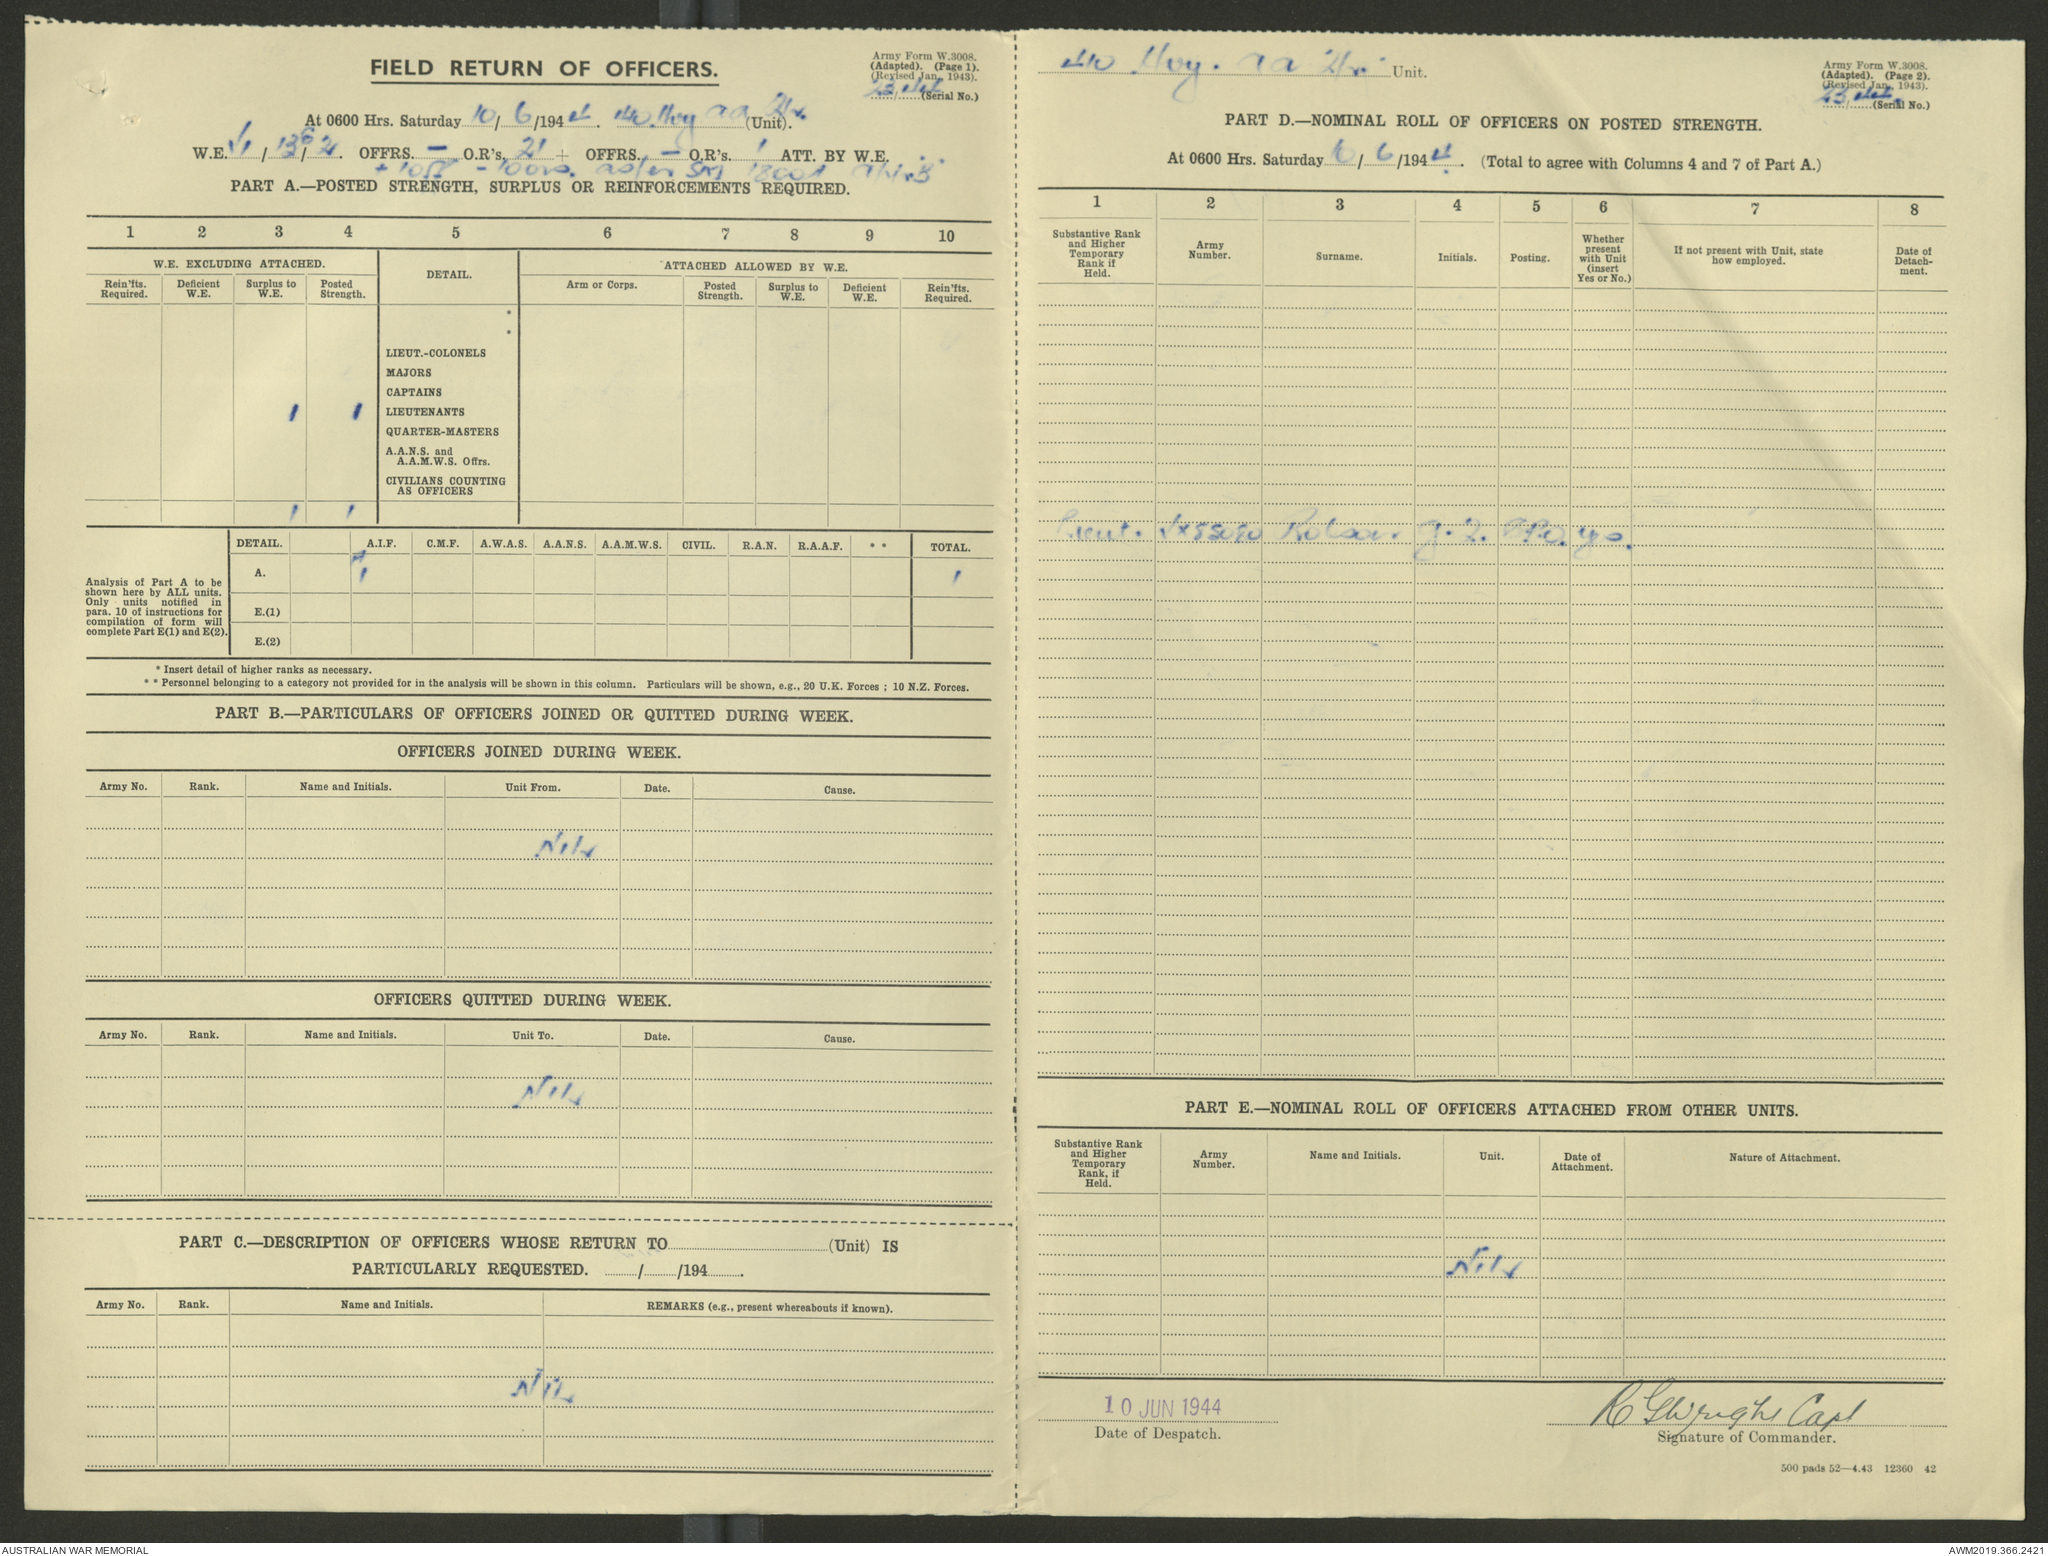 FIELD RETURN OF OFFICERS.
Army Form W.3008.
(Adapted). (Page 1).
(Revised Jan., 1943).
23/44 (Serial No.)
At 0600 Hrs. Saturday 10/6/1944. 40 Hvy AA (Unit).
W.E. VI / / . OFFRS. — O.R's. 21 + OFFRS. — O.R's. 1 ATT. BY W.E.
PART A.—POSTED STRENGTH, SURPLUS OR REINFORCEMENTS REQUIRED.
1 2 3 4 5 6 7 8 9 10
W.E. EXCLUDING ATTACHED. DETAIL. ATTACHED ALLOWED BY W.E.
Rein'fts. Required. Deficient W.E. Surplus to W.E. Posted Strength. Arm or Corps. Posted Strength. Surplus to W.E. Deficient W.E. Rein'fts. Required.
*
*
LIEUT.-COLONELS
MAJORS
CAPTAINS
1 1 LIEUTENANTS
QUARTER-MASTERS
A.A.N.S. and
A.A.M.W.S. Offrs.
CIVILIANS COUNTING
AS OFFICERS
1 1
DETAIL. A.I.F. C.M.F. A.W.A.S. A.A.N.S. A.A.M.W.S. CIVIL. R.A.N. R.A.A.F. * * TOTAL.
Analysis of Part A to be
shown here by ALL units.
Only units notified in
para. 10 of instructions for
compilation of form will
complete Part E(1) and E(2).
A. 1 1
E.(1)
E.(2)
* Insert detail of higher ranks as necessary.
* * Personnel belonging to a category not provided for in the analysis will be shown in this column. Particulars will be shown, e.g., 20 U.K. Forces ; 10 N.Z. Forces.
PART B.—PARTICULARS OF OFFICERS JOINED OR QUITTED DURING WEEK.
OFFICERS JOINED DURING WEEK.
Army No. Rank. Name and Initials. Unit From. Date. Cause.
Nil
OFFICERS QUITTED DURING WEEK.
Army No. Rank. Name and Initials. Unit To. Date. Cause.
Nil
PART C.—DESCRIPTION OF OFFICERS WHOSE RETURN TO (Unit) IS
PARTICULARLY REQUESTED. / /194 .
Army No. Rank. Name and Initials. REMARKS (e.g., present whereabouts if known).
Nil
40 Hvy. AA Unit.
Army Form W.3008.
(Adapted). (Page 2).
(Revised Jan., 1943).
23/44 (Serial No.)
PART D.—NOMINAL ROLL OF OFFICERS ON POSTED STRENGTH.
At 0600 Hrs. Saturday 10/6/1944. (Total to agree with Columns 4 and 7 of Part A.)
1 2 3 4 5 6 7 8
Substantive Rank and Higher Temporary Rank if Held. Army Number. Surname. Initials. Posting. Whether present with Unit (insert Yes or No.) If not present with Unit, state how employed. Date of Detach-ment.
Lieut. Robson. yes.
PART E.—NOMINAL ROLL OF OFFICERS ATTACHED FROM OTHER UNITS.
Substantive Rank and Higher Temporary Rank, if Held. Army Number. Name and Initials. Unit. Date of Attachment. Nature of Attachment.
Nil
10 JUN 1944
Date of Despatch.
R G Wright Capt
Signature of Commander.
500 pads 52—4.43 12360 42
AUSTRALIAN WAR MEMORIAL
AWM2019.366.2421